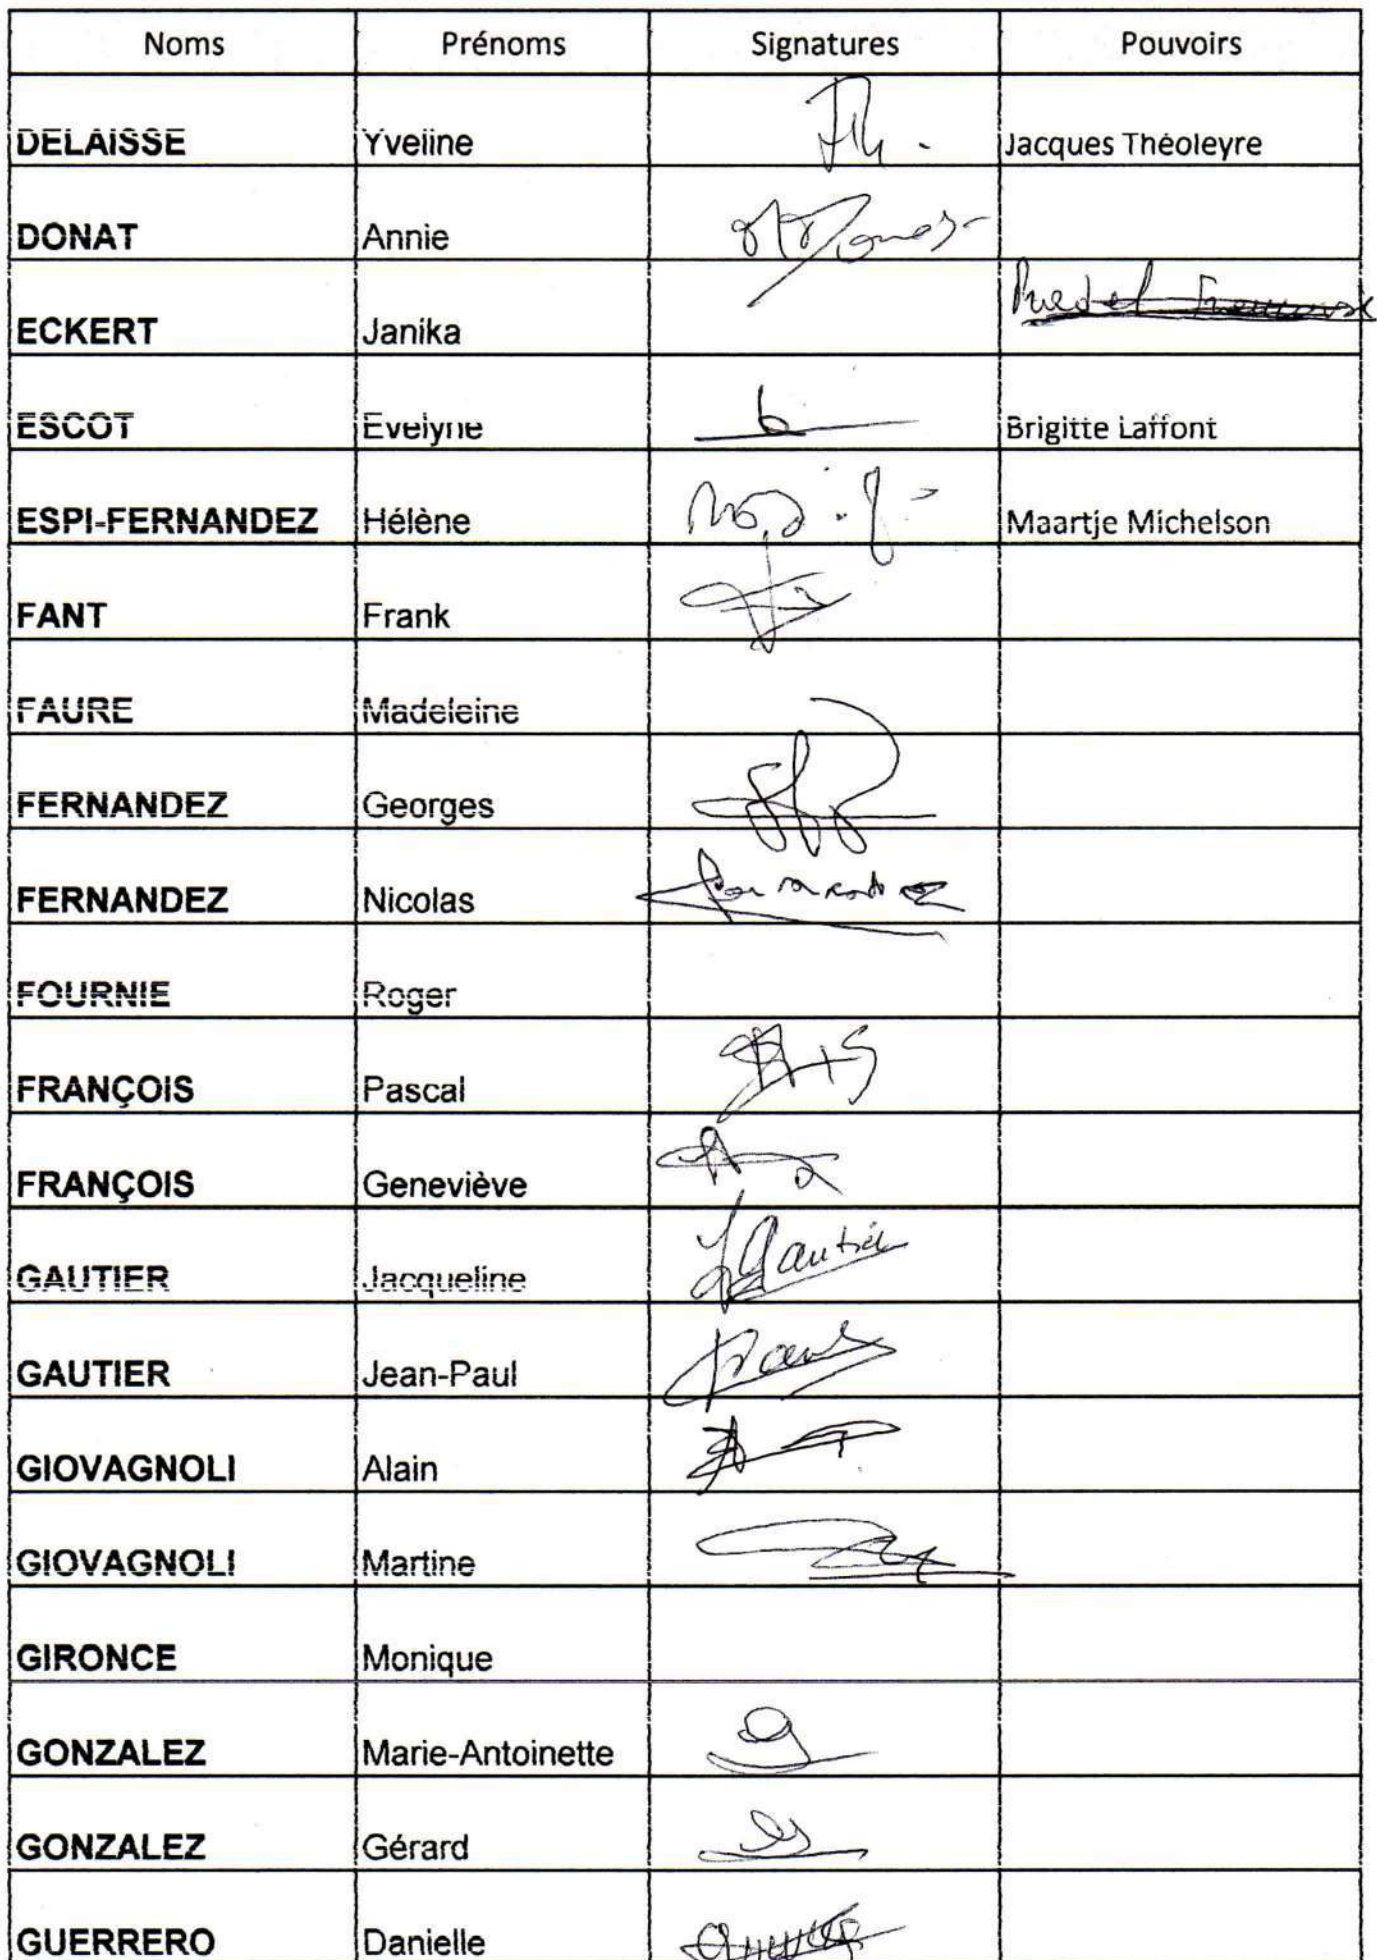 Noms Prénoms Signatures Pouvoirs
DELAISSE Yveline Jacques Théoleyre
DONAT Annie
ECKERT Janika
ESCOT Evelyne Brigitte Laffont
ESPI-FERNANDEZ Hélène Maartje Michelson
FANT Frank
FAURE Madeleine
FERNANDEZ Georges
FERNANDEZ Nicolas
FOURNIE Roger
FRANÇOIS Pascal
FRANÇOIS Geneviève
GAUTIER Jacqueline Gautier
GAUTIER Jean-Paul
GIOVAGNOLI Alain
GIOVAGNOLI Martine
GIRONCE Monique
GONZALEZ Marie-Antoinette
GONZALEZ Gérard
GUERRERO Danielle